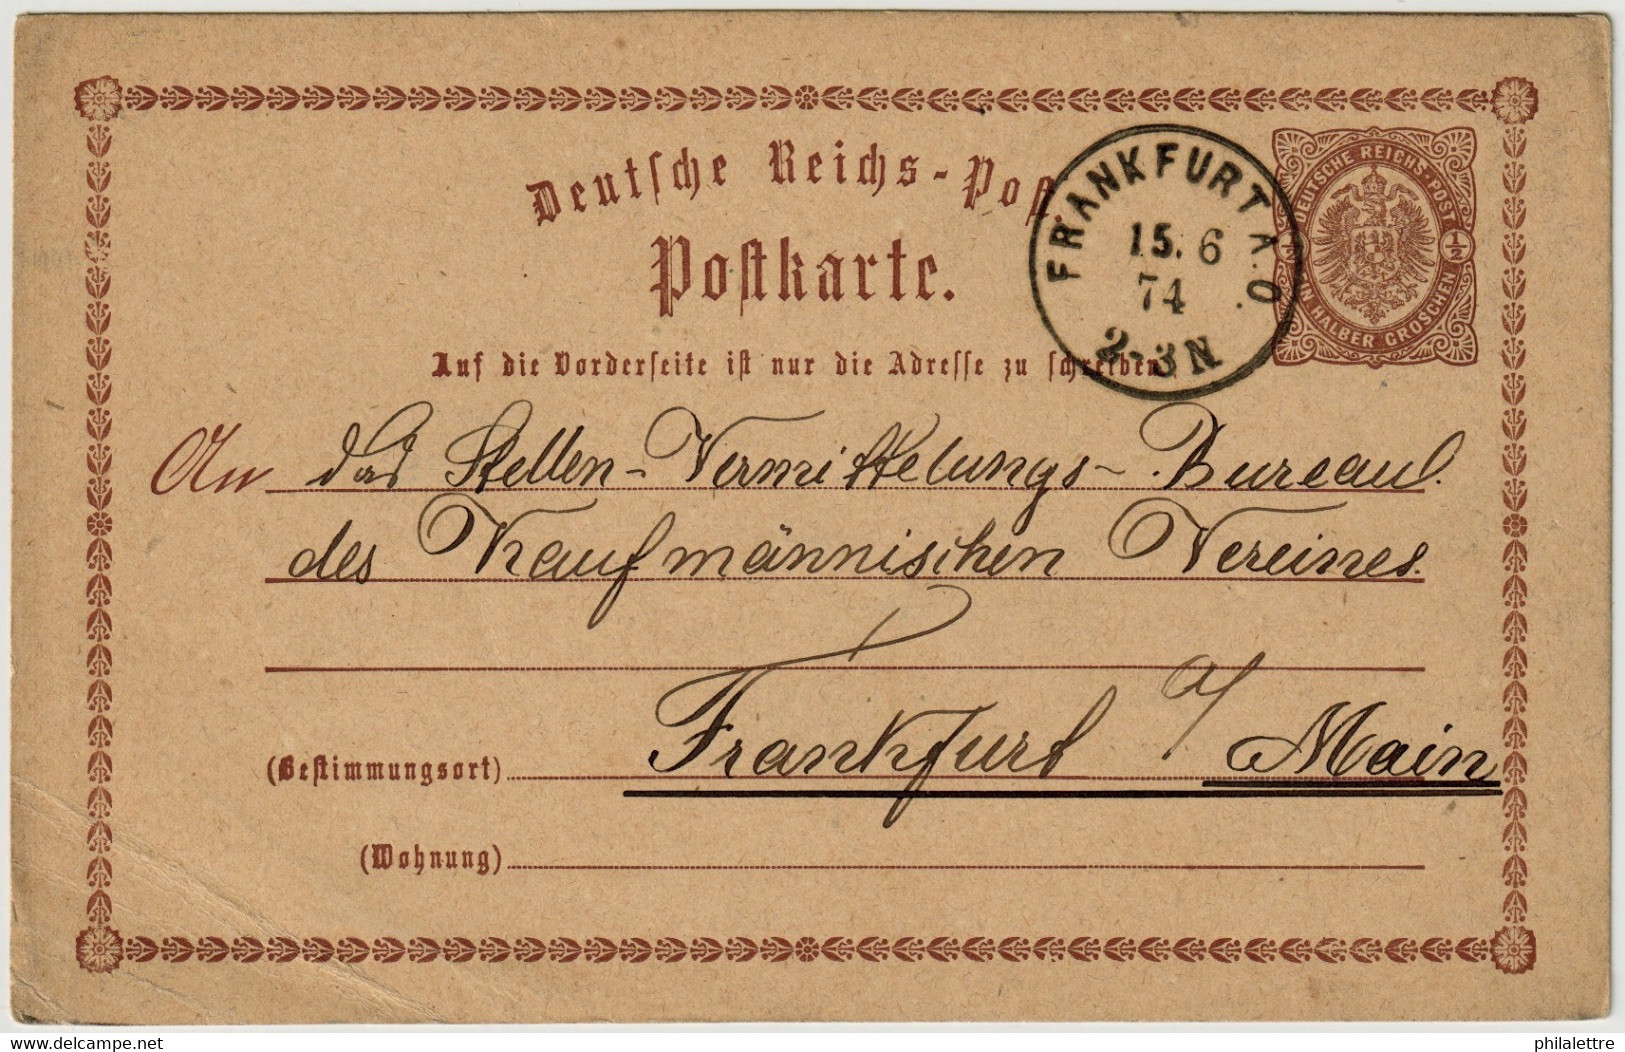 Deutsche Reichs-Post
Postkarte.
FRANKFURT A.O.
15. 6
74
2-3N
DEUTSCHE REICHS-POST
½ ½
EIN HALBER GROSCHEN
Auf die Vorderseite ist nur die Adresse zu schreiben
An das Stellen-Vermittelungs-Bureau
des Kaufmännischen Vereines.
(Bestimmungsort) Frankfurt a/ Main
(Wohnung)
delcampe.net
philalettre